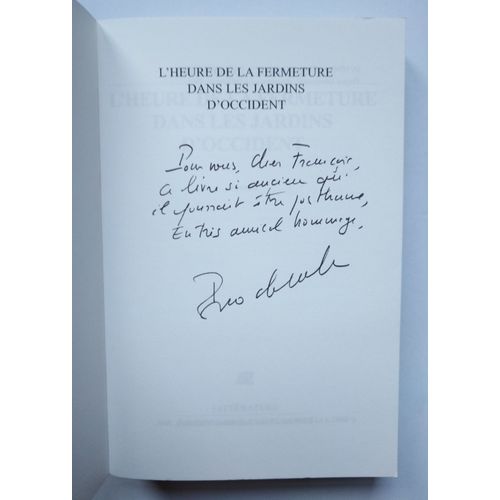 L'HEURE DE LA FERMETURE
DANS LES JARDINS
D'OCCIDENT
Pour vous, cher François,
ce livre si ancien qu'
il pourrait être posthume,
En très amical hommage,